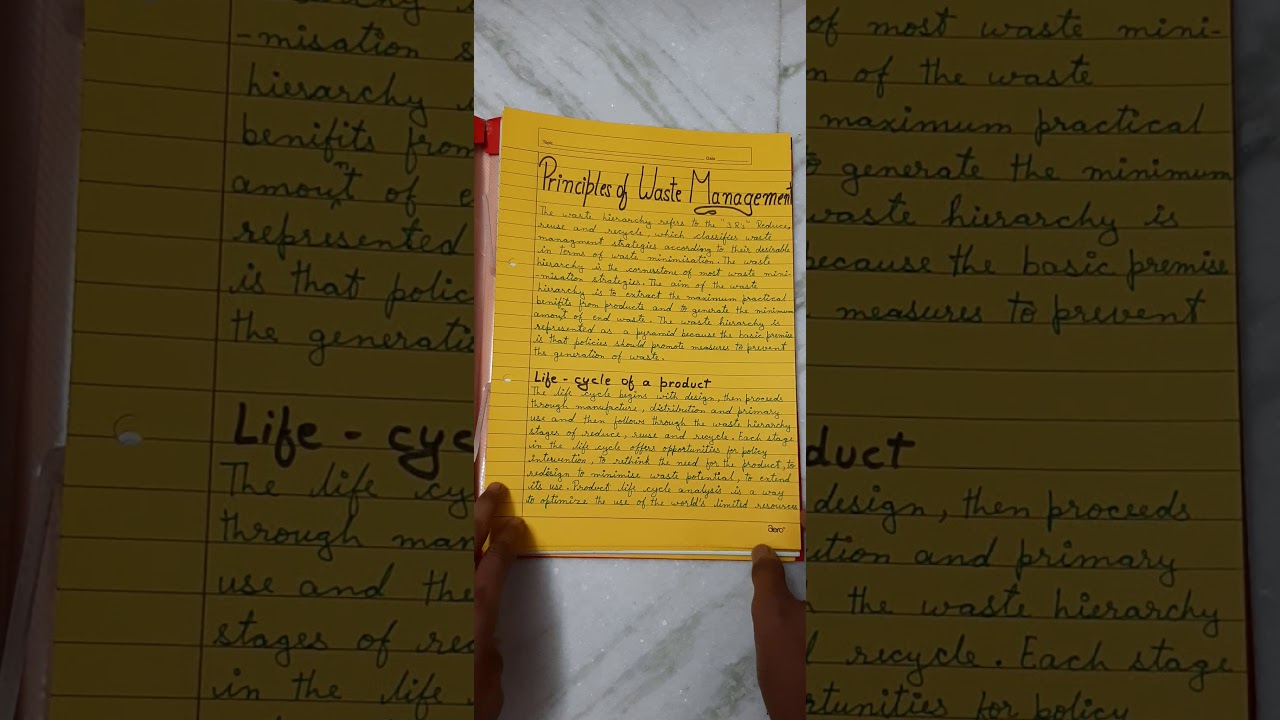 Topic
Date
Principles of Waste Management
The waste hierarchy refers to the "3 Rs" Reduce,
reuse and recycle, which classifies waste
managment strategies according to their desirable
in terms of waste minimisation. The waste
hierarchy is the cornerstone of most waste mini-
-misation strategies. The aim of the waste
hierarchy is to extract the maximum practical
benifits from products and to generate the minimum
amount of end waste. The waste hierarchy is
represented as a pyramid because the basic premise
is that policies should promote measures to prevent
the generation of waste.
Life - cycle of a product
The life cycle begins with design, then proceeds
through manufacture, distribution and primary
use and then follows through the waste hierarchy
stages of reduce, reuse and recycle. Each stage
in the life cycle offers opportunities for policy
intervention, to rethink the need for the product, to
redesign to minimise waste potential, to extend
its use. Product life cycle analysis is a way
to optimize the use of the world's limited resources
aero